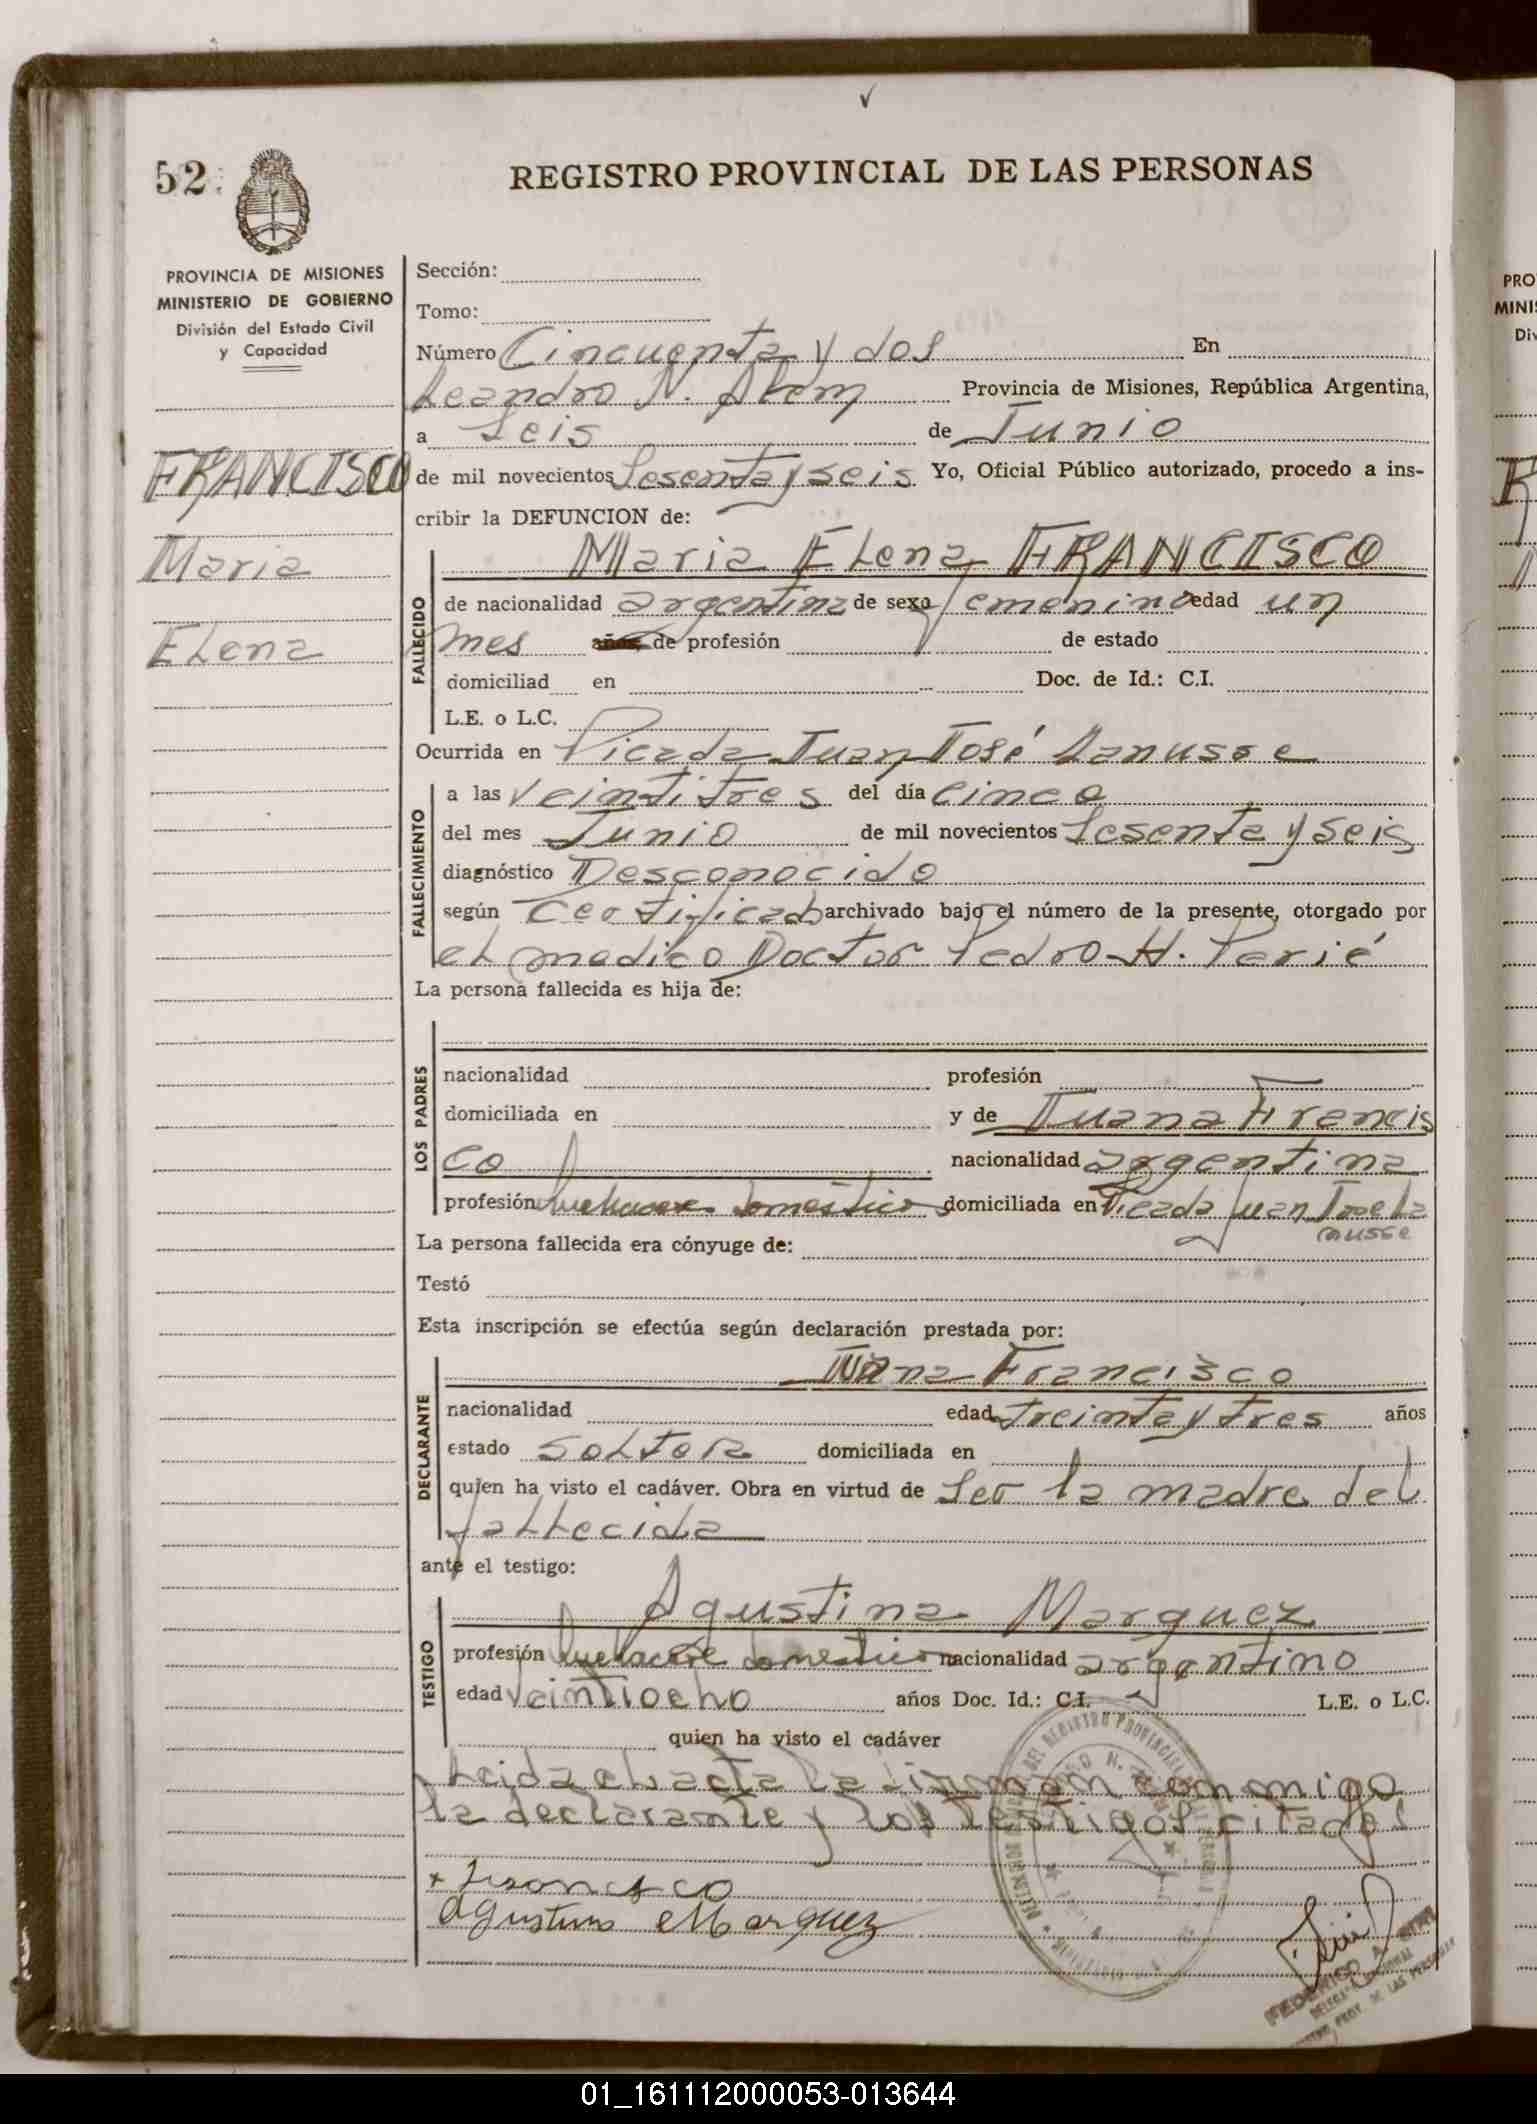 52
REGISTRO PROVINCIAL DE LAS PERSONAS
PROVINCIA DE MISIONES
MINISTERIO DE GOBIERNO
División del Estado Civil
y Capacidad
FRANCISCO
Maria
Elena
Sección:
Tomo:
Número Cincuenta y dos En
Leandro N. Alem Provincia de Misiones, República Argentina,
a Seis de Junio
de mil novecientos Sesenta y seis Yo, Oficial Público autorizado, procedo a ins-
cribir la DEFUNCION de:
FALLECIDO
Maria Elena FRANCISCO
de nacionalidad argentina de sexo femenino edad un
mes años de profesión de estado
domiciliad en Doc. de Id.: C.I.
L.E. o L.C.
Ocurrida en Picada Juan José Lanusse
FALLECIMIENTO
a las veintitres del día cinco
del mes Junio de mil novecientos Sesenta y seis
diagnóstico Desconocido
según Certificado archivado bajo el número de la presente, otorgado por
el medico Doctor Pedro H. Perié
La persona fallecida es hija de:
LOS PADRES
nacionalidad profesión
domiciliada en y de Juana Francis
co nacionalidad argentina
profesión quehacere domestico domiciliada en Picada Juan Jose La
nusse
La persona fallecida era cónyuge de:
Testó
Esta inscripción se efectúa según declaración prestada por:
DECLARANTE
Juana Francisco
nacionalidad edad treinta y tres años
estado soltera domiciliada en
quien ha visto el cadáver. Obra en virtud de ser la madre del
fallecida
ante el testigo:
TESTIGO
Agustina Marquez
profesión quehacere domestico nacionalidad argentino
edad veintiocho años Doc. Id.: C.I. L.E. o L.C.
quien ha visto el cadáver
Leida el acta la firman conmigo
la declarante y los testigos citados
Francisco
Agustina Marquez
FEDERICO A.
01_161112000053-013644